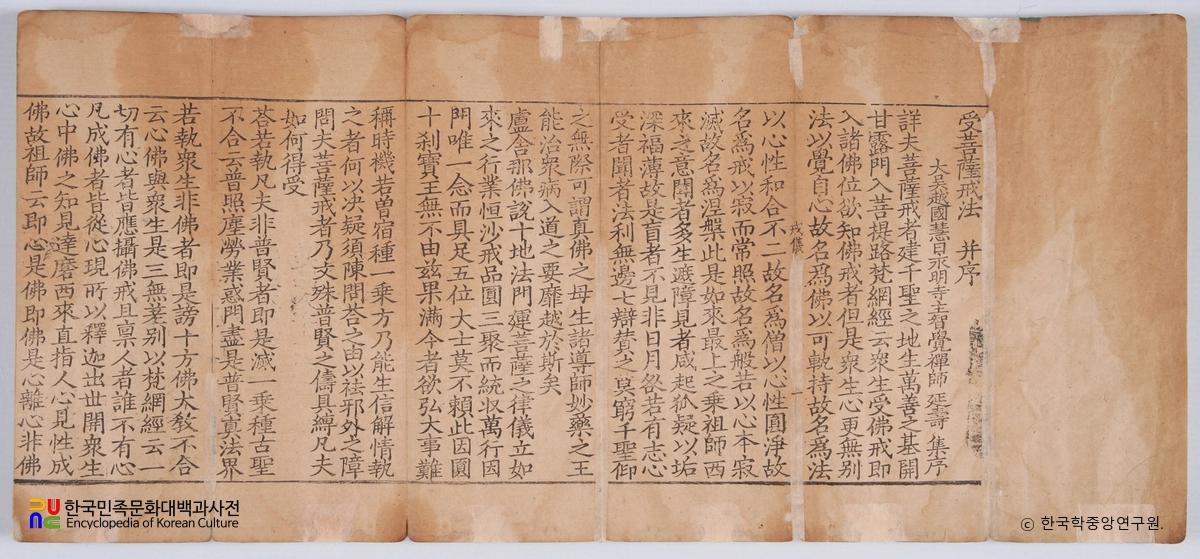 受菩薩戒法 并序
大吳越國慧日永明寺主智覺禪師 延壽 集序
詳夫菩薩戒者建千聖之地生萬善之基開
甘露門入菩提路梵網經云衆生受佛戒即
入諸佛位欲知佛戒者但是衆生心更無別
法以覺自心故名爲佛以可軌持故名爲法
戒儀 一
以心性和合不二故名爲僧以心性圓淨故
名爲戒以寂而常照故名爲般若以心本寂
滅故名爲涅槃此是如來最上之乘祖師西
來之意聞者多生遮障見者咸起狐疑以垢
深福薄故是盲者不見非日月咎若有志心
受者聞者法利無邊七辯贊之莫窮千聖仰
之無際可謂真佛之母生諸導師妙藥之王
能治衆病入道之要靡越於斯矣
盧舍那佛說十地法門運菩薩之律儀立如
來之行業恒沙戒品圓三聚而統收萬行因
門唯一念而具足五位大士莫不賴此因圓
十刹寶王無不由茲果滿今者欲弘大事難
稱時機若曾宿種一乘方乃能生信解情執
之者何以決疑須陳問荅之由以祛邪外之障
問夫菩薩戒者乃文殊普賢之儔具縛凡夫
如何得受
荅若執凡夫非普賢者即是滅一乘種古聖
不合云普照塵勞業惑門盡是普賢真法界
若執衆生非佛者即是謗十方佛大敎不合
云心佛與衆生是三無差別以梵網經云一
切有心者皆應攝佛戒且禀人者誰不有心
凡成佛者皆從心現所以釋迦出世開衆生
心中佛之知見達磨西來直指人心見性成
佛故祖師云即心是佛即佛是心離心非佛
한국민족문화대백과사전
Encyclopedia of Korean Culture
© 한국학중앙연구원.